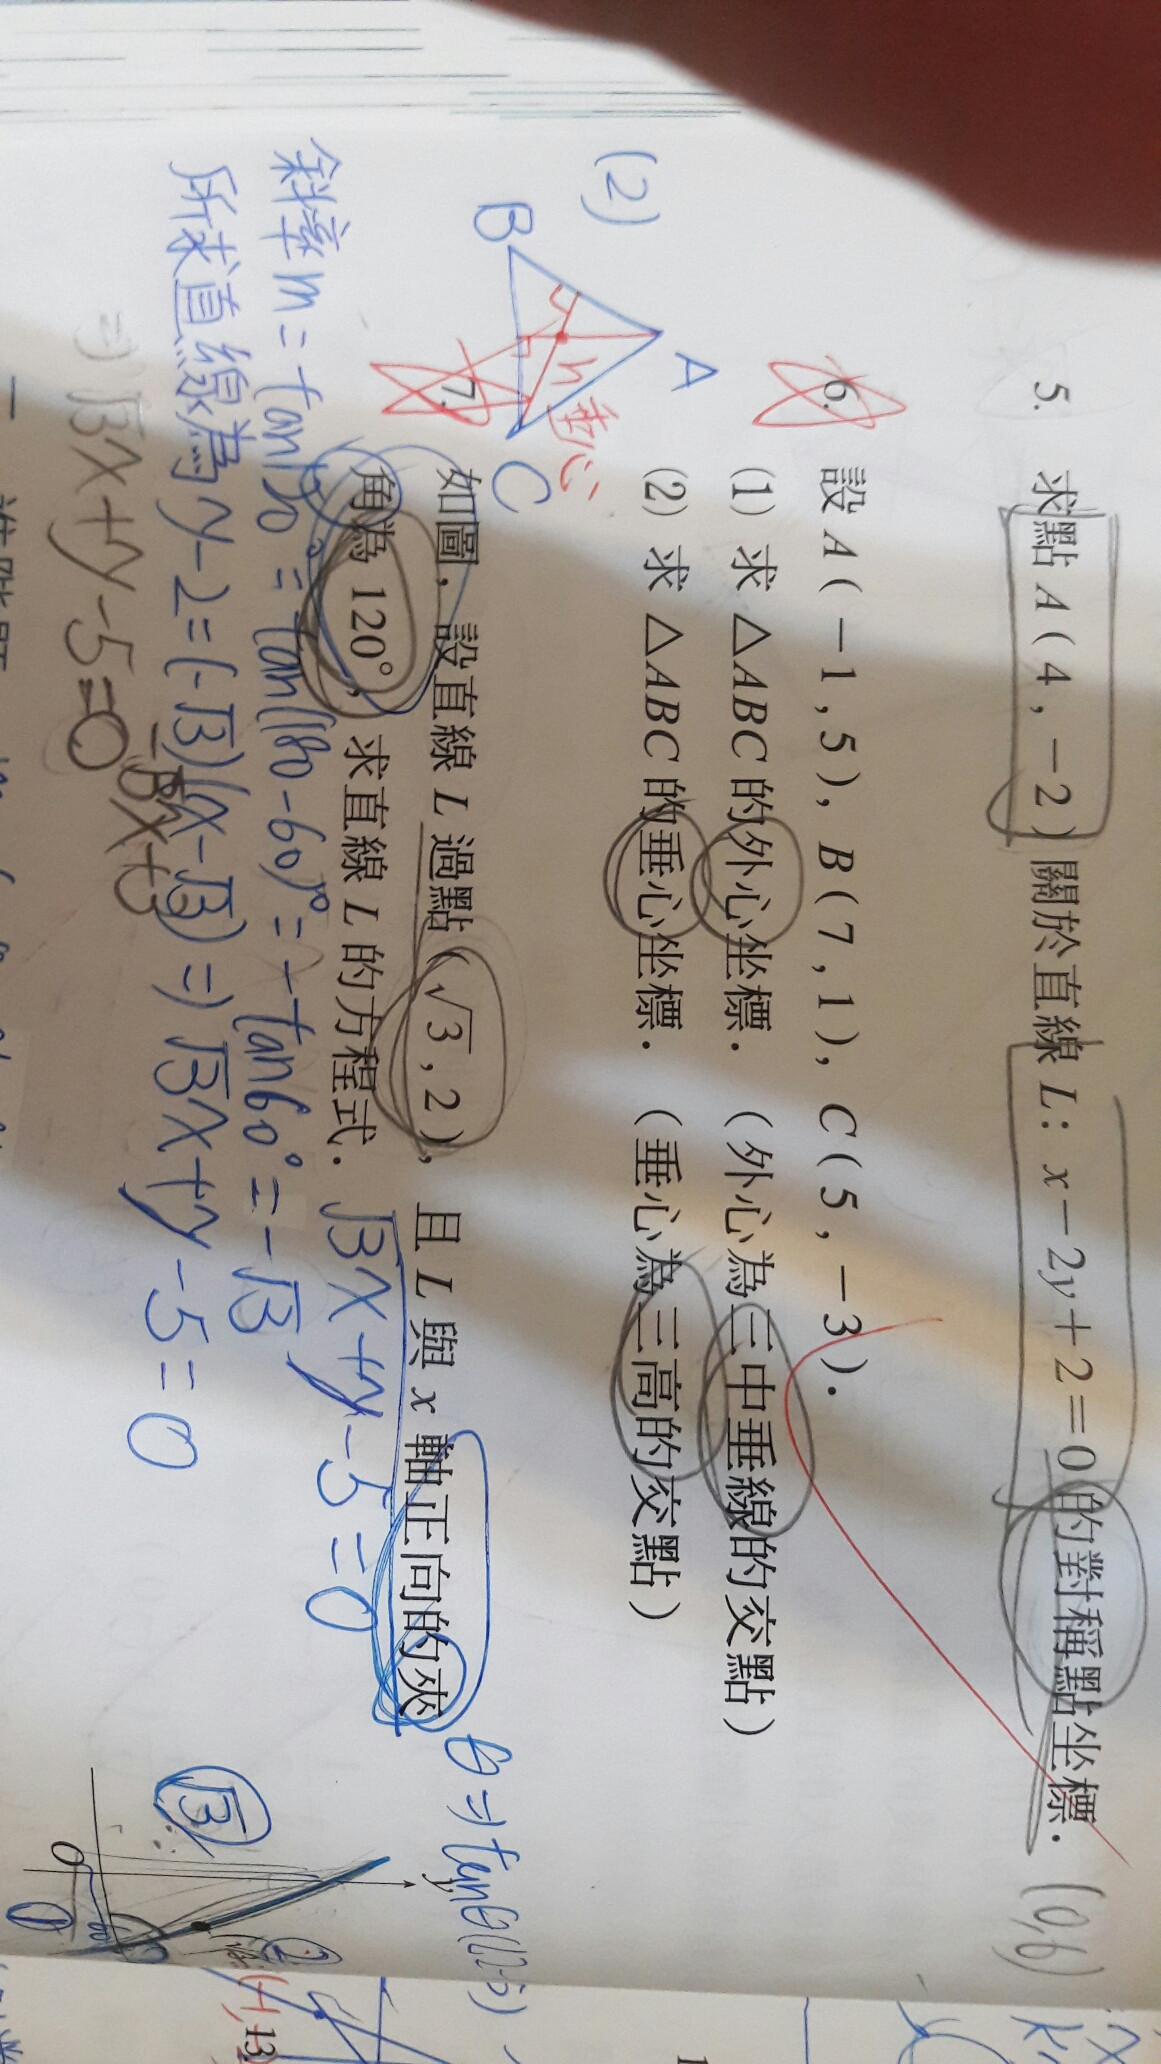 5. 求點 A(4,-2)關於直線 L:x-2y+2=0的對稱點坐標. (0,6)
6. 設 A(-1,5), B(7,1), C(5,-3).
(1) 求 △ABC 的外心坐標.(外心為三中垂線的交點)
(2) 求 △ABC 的垂心坐標.(垂心為三高的交點)
(2)
A
B
C
h
垂心
7. 如圖,設直線 L 過點(√3,2),且 L 與 x 軸正向的夾
角為 120°,求直線 L 的方程式. √3x+y-5=0
θ⇒tanθ
斜率m=tan120°=tan(180-60)°=-tan60°=-√3
所求直線為y-2=(-√3)(x-√3)⇒√3x+y-5=0
⇒√3x+y-5=0
-√3x+3
√3
y
O
60
2
13